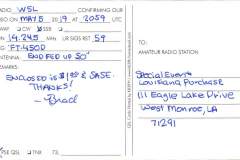 RADIO W5L CONFIRMING OUR
ON MAY 5 2019 AT 2059 UTC
CW SSB
ON 14.245 MHz UR SIGS RST 59
RIG FT-450D
ANTENNA END FED UP 30'
ENCLOSED IS $1.00 & SASE.
THANKS!
- Brad
PSE QSL TNX 73
TO:
AMATEUR RADIO STATION
Special Event
Louisiana Purchase
111 Eagle Lake Drive
West Monroe, LA
71291